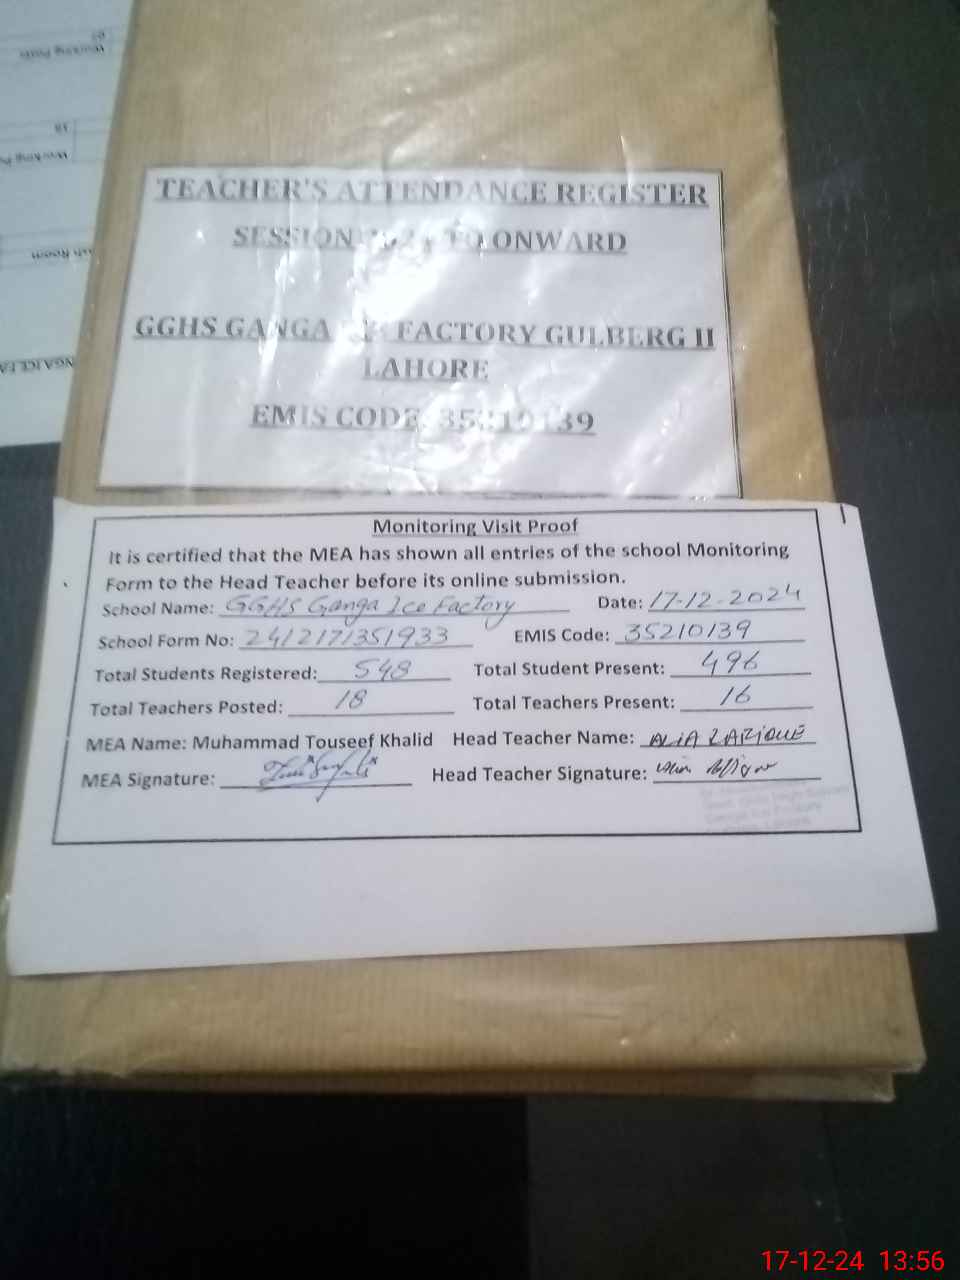 Working Posts
18
Working Po
Room
TEACHER'S ATTENDANCE REGISTER
SESSION TO ONWARD
GGHS GANGA FACTORY GULBERG II
LAHORE
EMIS CODE 35210139
Monitoring Visit Proof
It is certified that the MEA has shown all entries of the school Monitoring
Form to the Head Teacher before its online submission.
School Name: GGHS Ganga Ice Factory Date: 17-12-2024
School Form No: 241217/351933 EMIS Code: 35210139
Total Students Registered: 548 Total Student Present: 496
Total Teachers Posted: 18 Total Teachers Present: 16
MEA Name: Muhammad Touseef Khalid Head Teacher Name: ALIA
MEA Signature: Head Teacher Signature:
17-12-24 13:56